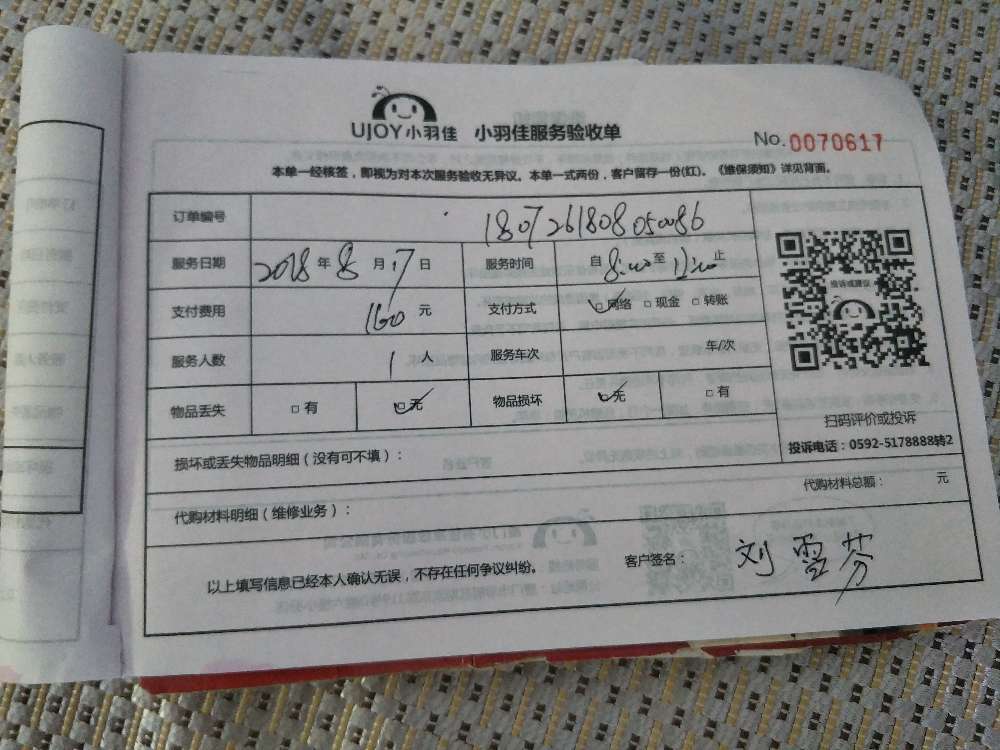 UJOY小羽佳 小羽佳服务验收单
No.0070617
本单一经核签，即视为对本次服务验收无异议。本单一式两份，客户留存一份(红)。《维保须知》详见背面。
订单编号 1807261808050086
服务日期 2018年8月17日 服务时间 自8:00至12:00止
支付费用 160元 支付方式 ☑网络 □现金 □转账
服务人数 1人 服务车次 车/次
物品丢失 □有 ☑无 物品损坏 ☑无 □有
投诉或建议
扫码评价或投诉
投诉电话：0592-5178888转2
损坏或丢失物品明细（没有可不填）：
代购材料明细（维修业务）： 代购材料总额： 元
以上填写信息已经本人确认无误，不存在任何争议纠纷。 客户签名： 刘雪芬